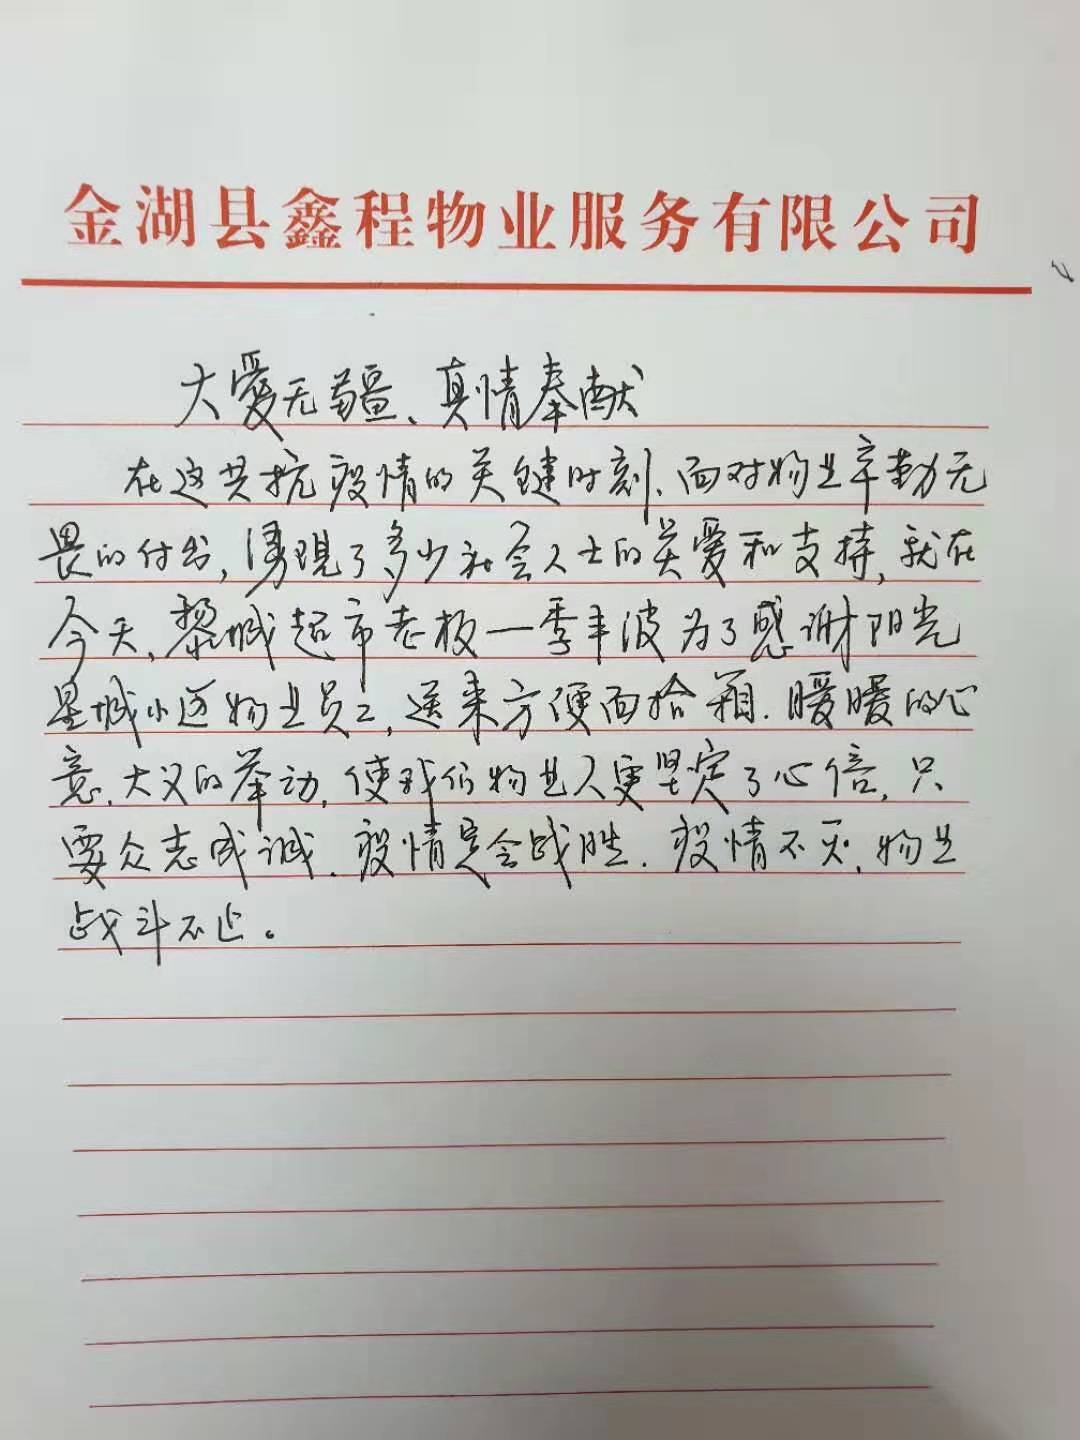 金湖县鑫程物业服务有限公司
大爱无疆、真情奉献
在这共抗疫情的关键时刻、面对物业辛勤无
畏的付出,涌现了多少社会人士的关爱和支持,就在
今天,黎城超市老板一季丰波为了感谢阳光
星城小区物业员工,送来方便面拾箱.暖暖的心
意.大义的举动,使我们物业人更坚定了心倍,只
要众志成诚.疫情定会战胜.疫情不灭,物业
战斗不止。